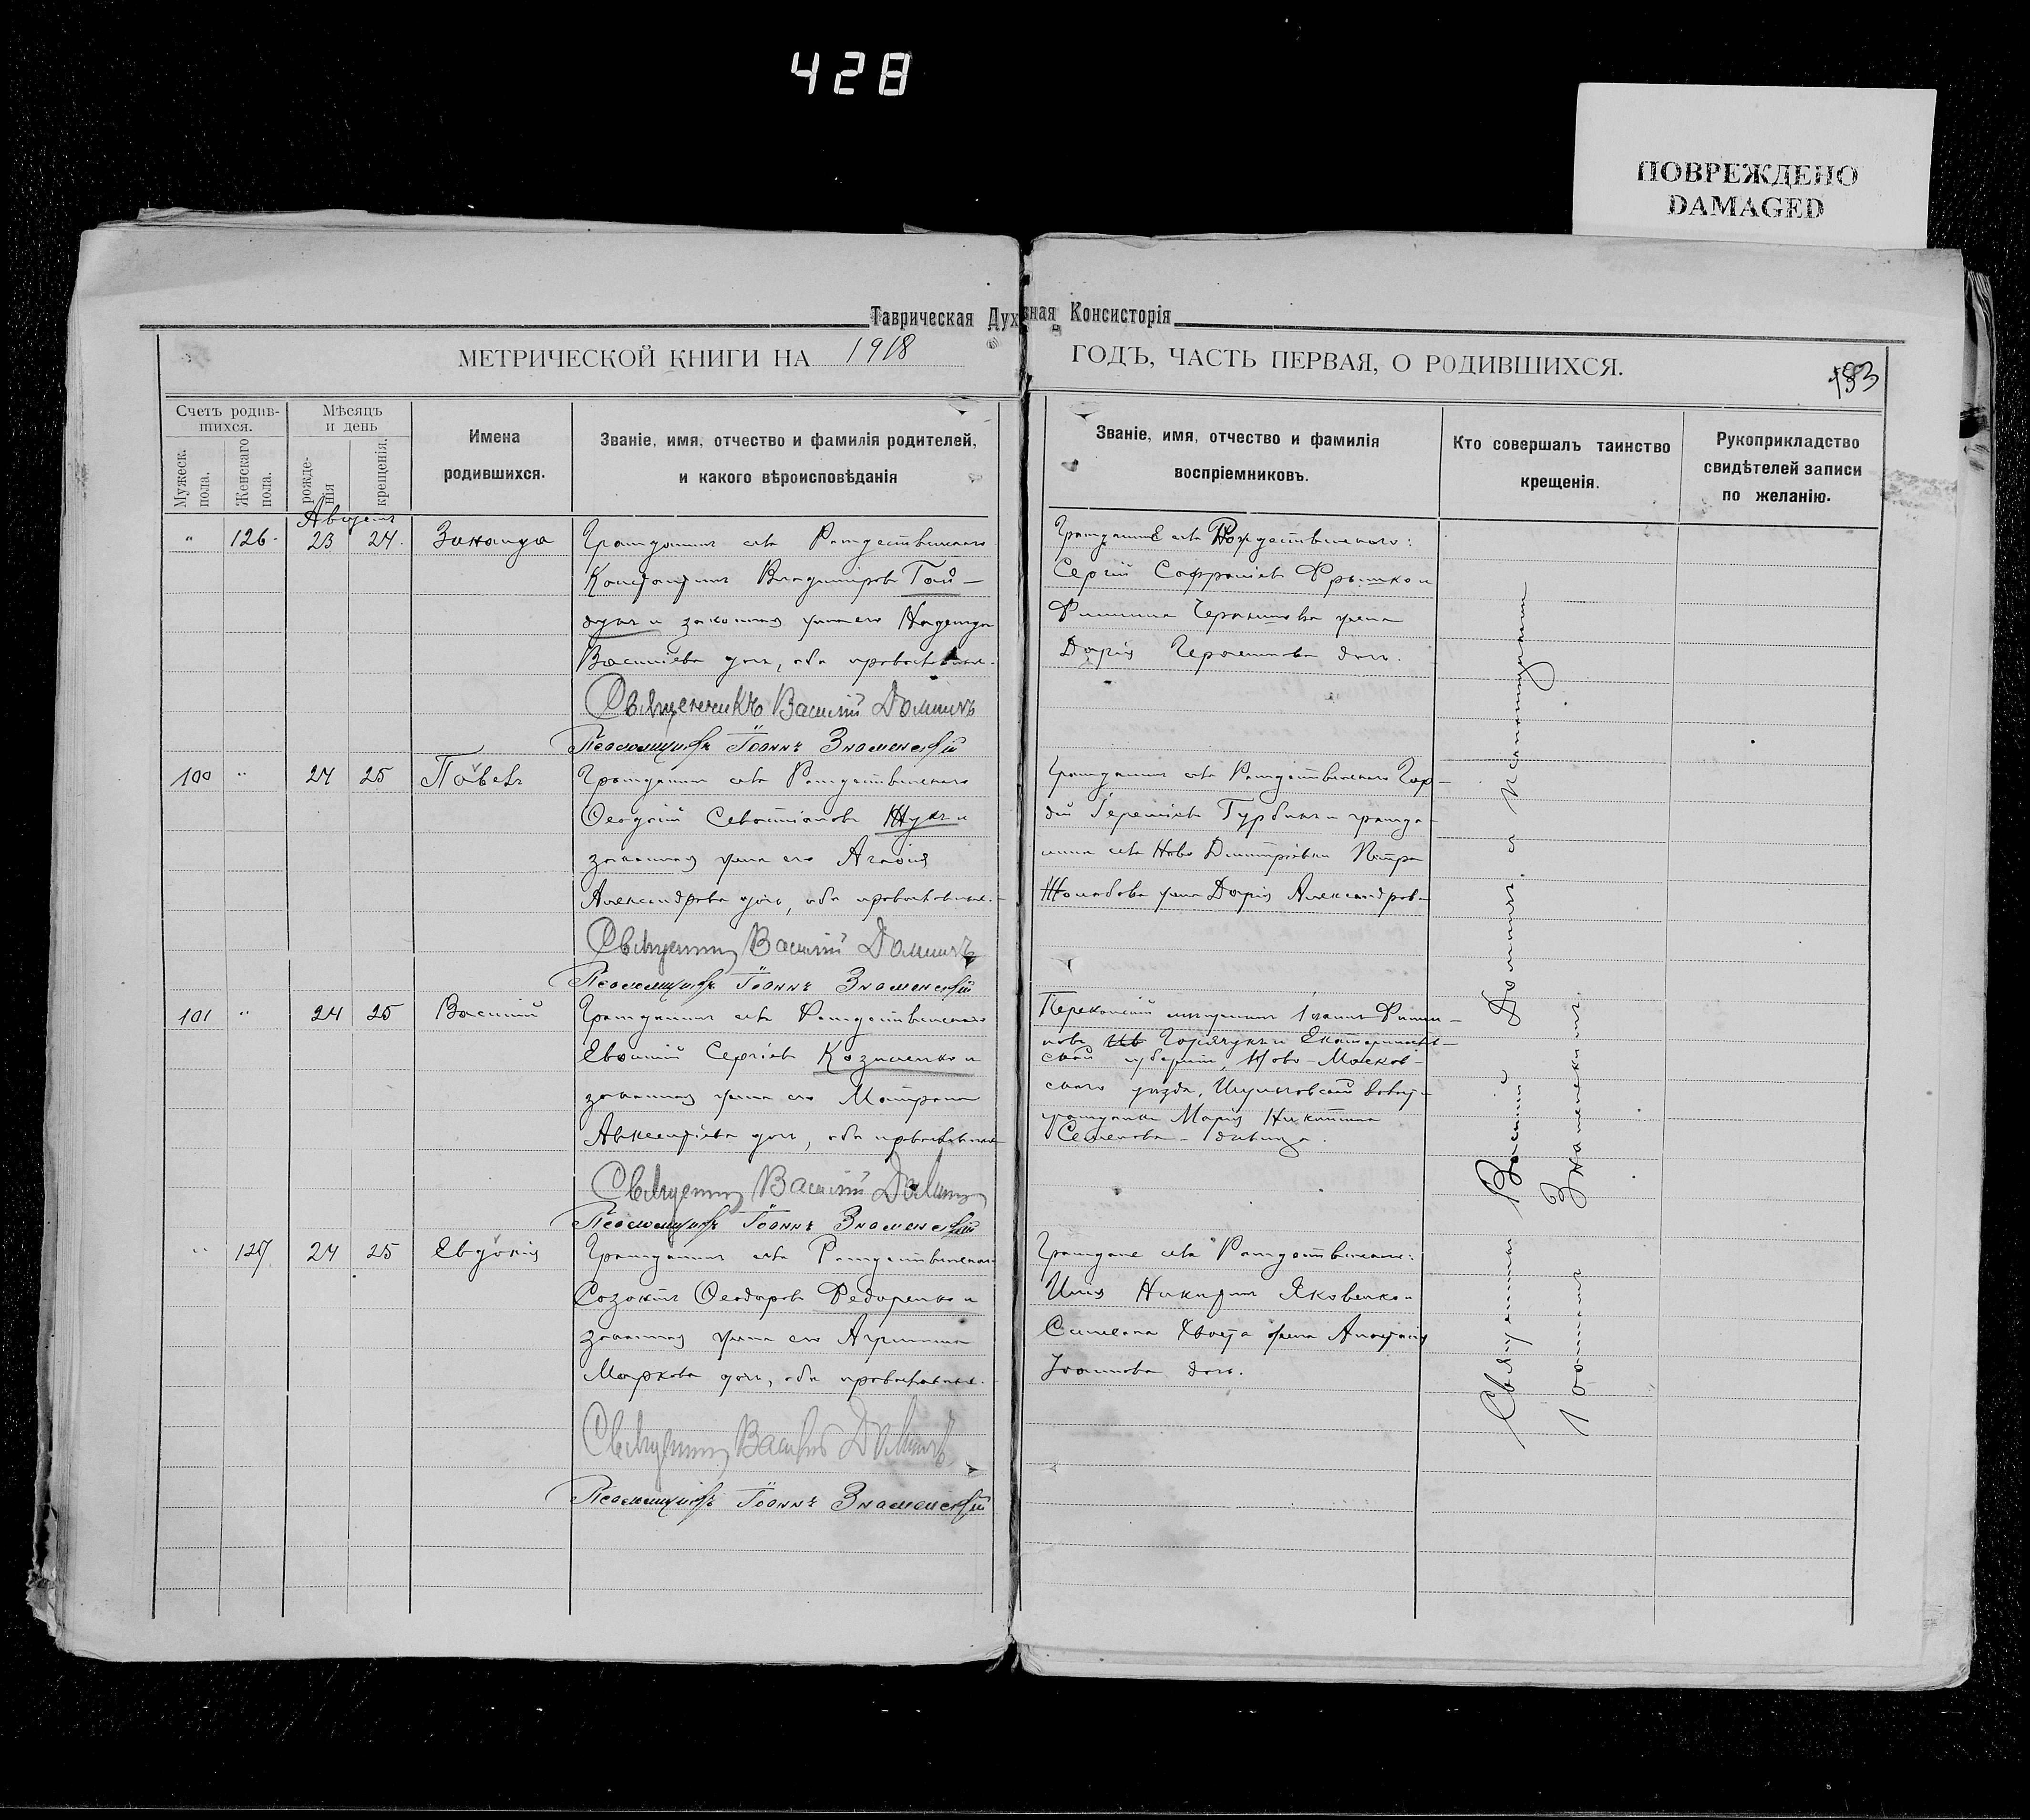 428
ПОВРЕЖДЕНО
DAMAGED
Таврическая Духовная Консисторія
МЕТРИЧЕСКОЙ КНИГИ НА 1918 ГОДЪ, ЧАСТЬ ПЕРВАЯ, О РОДИВШИХСЯ.
153
Счетъ родившихся.
Мужеск. пола.
Женскаго пола.
Мѣсяцъ и день
рожденія
крещенія.
Имена
родившихся.
Званіе, имя, отчество и фамилія родителей,
и какого вѣроисповѣданія
Званіе, имя, отчество и фамилія
воспріемниковъ.
Кто совершалъ таинство
крещенія.
Рукоприкладство
свидѣтелей записи
по желанію.
Августъ
" 126. 23 24. Зинаида
Гражданинъ села Рождественскаго
Константинъ Владиміровъ Гай-
дукъ и законная жена его Надежда
Василіева дочь, оба православные.
Священникъ Василій Доминъ
Псаломщикъ Іоаннъ Знаменскій
Граждане села Рождественскаго:
Сергій Софроніевъ и
Филиппа жена
Дарія Герасимова дочь.
100 " 24 25 Павелъ
Гражданинъ села Рождественскаго
Ѳеодосій Севастіановъ Жукъ и
законная жена его Агафія
Александрова дочь, оба православные.
Священникъ Василій Доминъ
Псаломщикъ Іоаннъ Знаменскій
Гражданинъ села Рождественскаго Гор-
дій Іереміевъ Гурбикъ и гражда-
нина села Ново Димитріевки Петра
жена Дарія Александрова
101 " 24 25 Василій
Гражданинъ села Рождественскаго
Евѳимій Сергіевъ Козиненко и
законная жена его Матрона
Авксентіева дочь, оба православные
Священникъ Василій Доминъ
Псаломщикъ Іоаннъ Знаменскій
Перекопскій мѣщанинъ Іоаннъ Филип-
повъ Горячукъ и Екатеринослав-
ской губерніи, Ново-Москов-
скаго уѣзда, волости
гражданка Марія Никитина
Семенова - дѣвица.
" 127 24 25 Евдокія
Гражданинъ села Рождественскаго
Созонтъ Ѳеодоровъ Федоренко и
законная жена его Агриппина
Маркова дочь, оба православные.
Священникъ Василій Доминъ
Псаломщикъ Іоаннъ Знаменскій
Граждане села Рождественскаго:
Илія Никитинъ Яковенко и
Симеона жена Анастасія
Іоаннова дочь.
Священникъ Василій Доминъ и Псаломщикъ
Іоаннъ Знаменскій.